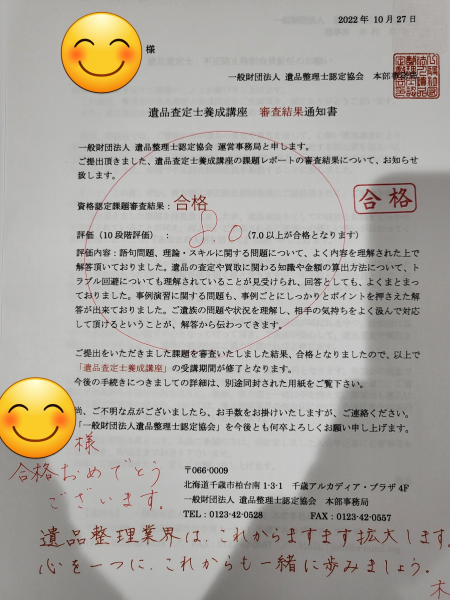 2022 年 10 月 27 日
様
一般財団法人 遺品整理士認定協会 本部事務局
遺品査定士養成講座 審査結果通知書
一般財団法人 遺品整理士認定協会 運営事務局と申します。
ご提出頂きました、遺品査定士養成講座の課題レポートの審査結果について、お知らせ
致します。
資格認定課題審査結果：合格
合格
評価（10 段階評価） ： 8.0 （7.0 以上が合格となります）
評価内容：語句問題、理論・スキルに関する問題について、よく内容を理解された上で
解答頂いておりました。遺品の査定や買取に関わる知識や金額の算出方法について、ト
ラブル回避についても理解されていることが見受けられ、回答としても、よくまとまっ
ておりました。事例演習に関する問題も、事例ごとにしっかりとポイントを押さえた解
答が出来ておりました。ご遺族の問題や状況を理解し、相手の気持ちをよく汲んで対応
して頂けるということが、解答から伝わってきます。
ご提出をいただきました課題を審査いたしました結果、合格となりましたので、以上で
「遺品査定士養成講座」の受講期間が修了となります。
今後の手続きにつきましての詳細は、別途同封された用紙をご覧下さい。
尚、ご不明な点がございましたら、お手数をお掛けいたしますが、ご連絡ください。
「一般財団法人遺品整理士認定協会」を今後とも何卒よろしくお願い申し上げます。
様
合格おめでとう
ございます。
〒066-0009
北海道千歳市柏台南 1-3-1 千歳アルカディア・プラザ 4F
一般財団法人 遺品整理士認定協会 本部事務局
TEL：0123-42-0528 FAX：0123-42-0557
遺品整理業界は、これからますます拡大します。
心を一つに、これからも一緒に歩みましょう。
木